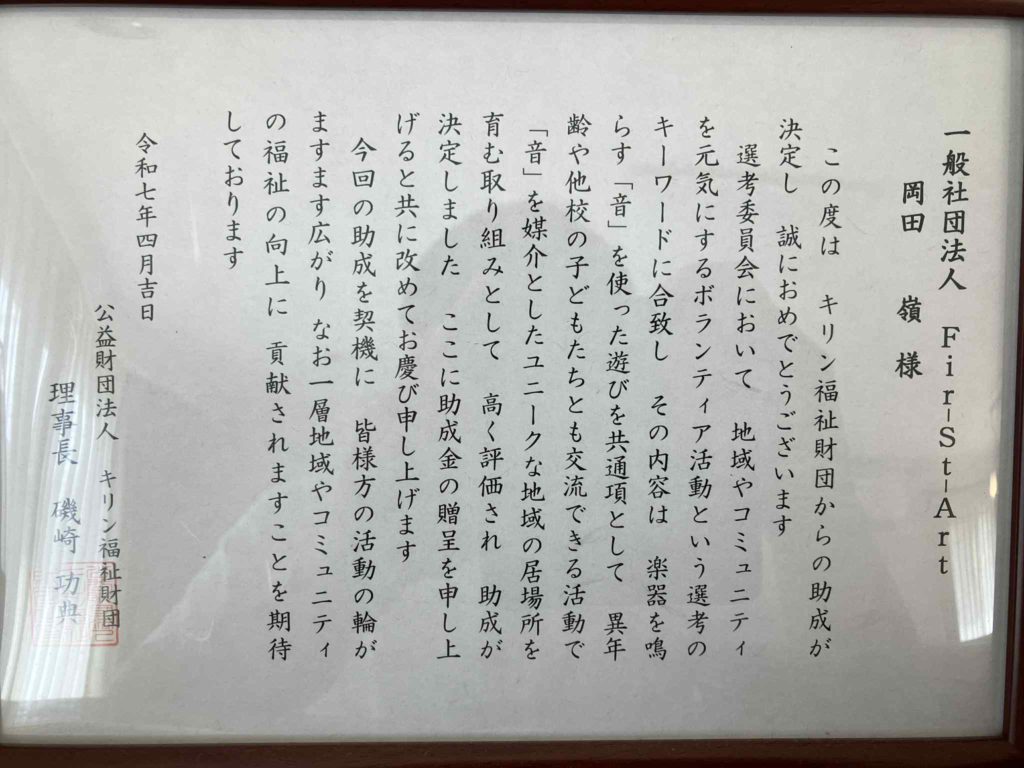 一般社団法人 Fir-St-Art
岡田 嶺 様
この度は キリン福祉財団からの助成が
決定し 誠におめでとうございます
選考委員会において 地域やコミュニティ
を元気にするボランティア活動という選考の
キーワードに合致し その内容は 楽器を鳴
らす「音」を使った遊びを共通項として 異年
齢や他校の子どもたちとも交流できる活動で
「音」を媒介としたユニークな地域の居場所を
育む取り組みとして 高く評価され 助成が
決定しました ここに助成金の贈呈を申し上
げると共に改めてお慶び申し上げます
今回の助成を契機に 皆様方の活動の輪が
ますます広がり なお一層地域やコミュニティ
の福祉の向上に 貢献されますことを期待
しております
令和七年四月吉日
公益財団法人 キリン福祉財団
理事長 磯崎 功典